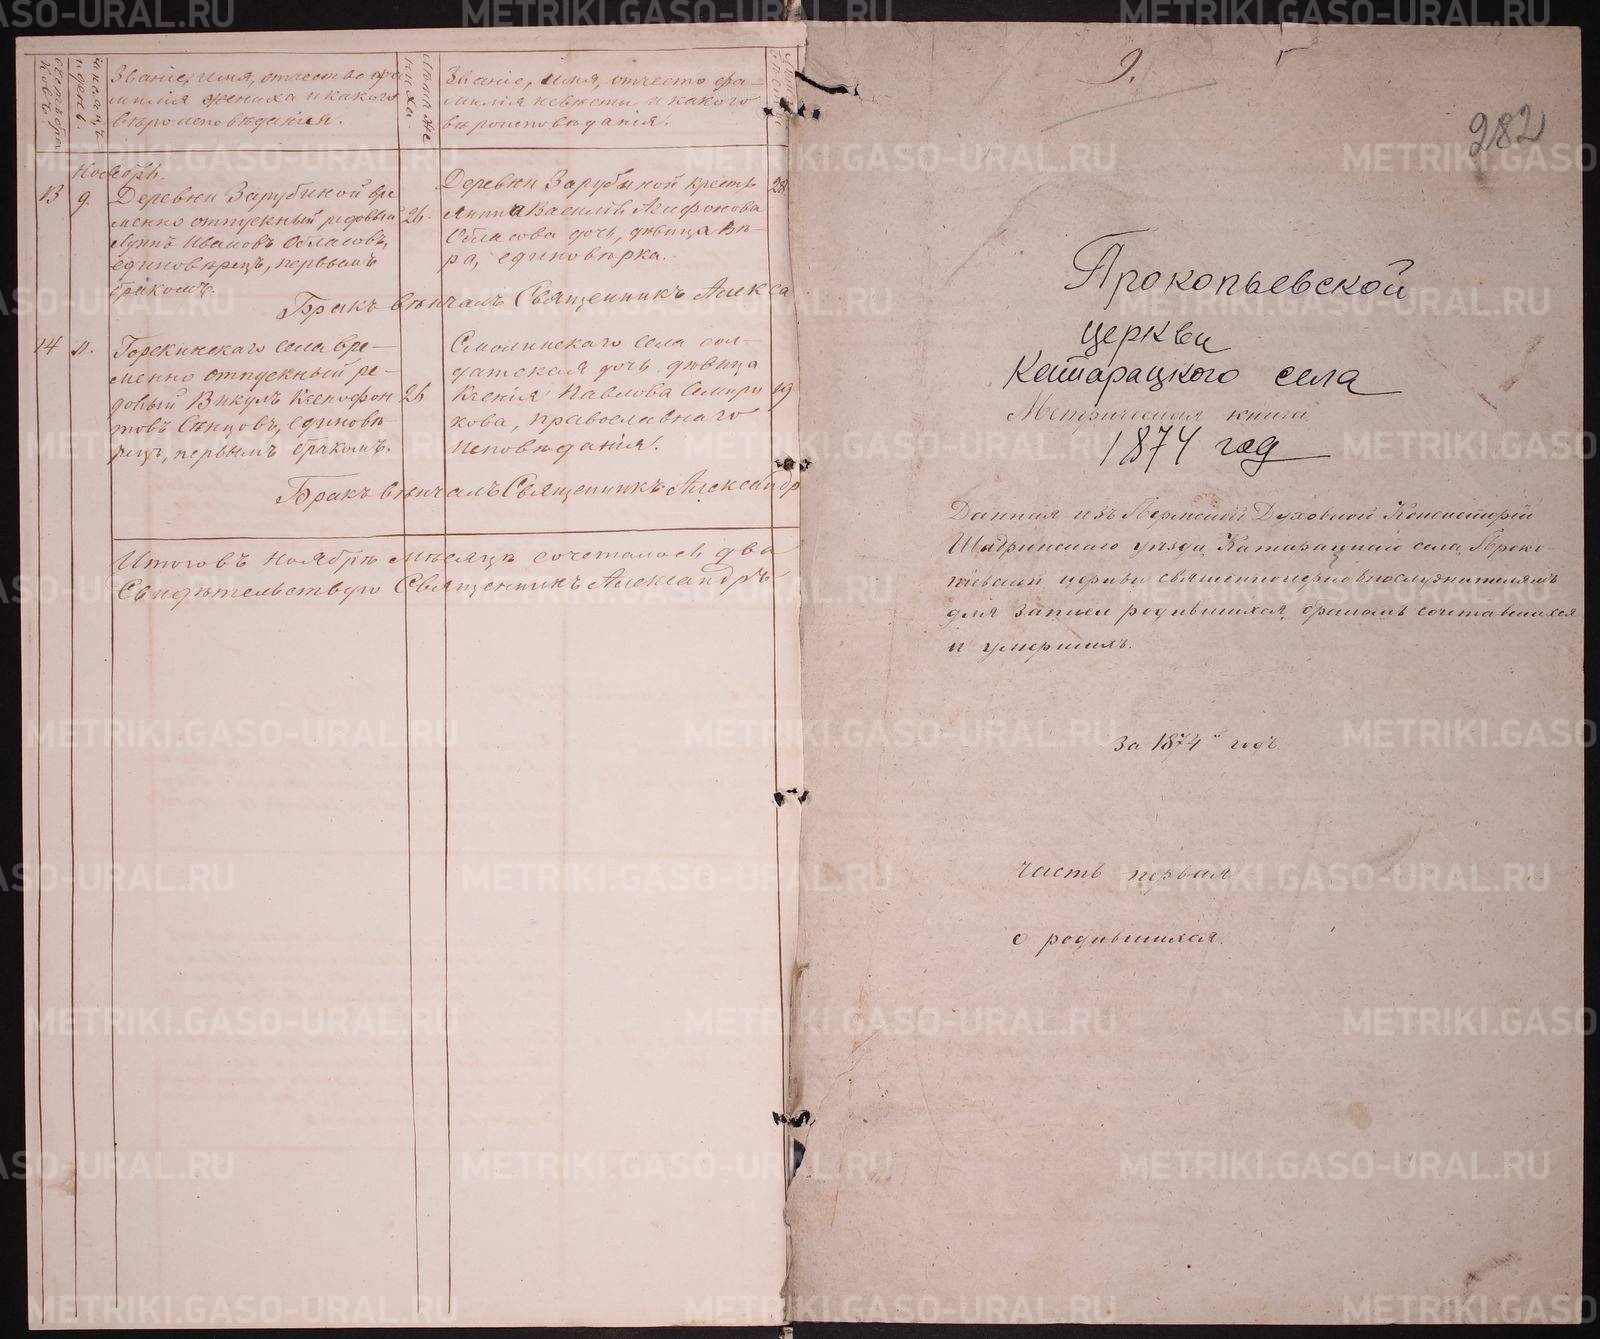 Званіе, имя, отчество фа
милія жениха и какого
вѣроисповѣданія.
Званіе, имя, отчесто фа-
милія невѣсты и какого
вѣроисповѣданія.
Ноябрь.
13 9. Деревни Зарубиной вре
менно отпускный рядовый 26.
Иванов Обласовъ,
единовѣрецъ, первымъ
бракомъ.
Деревни Зарубиной крестъ 28
Анна Василіева Агафонова
Обласова дочь, дѣвица Вѣ-
ра, единовѣрка.
Бракъ вѣнчалъ Священникъ Алекса
14 Горскинскаго села вре-
менно отпускный ря-
довый Викулъ Ксенофон 26
товъ Сѣнцовъ, единовѣ
рецъ, первымъ бракомъ.
Смолинскаго села сол-
датская дочь дѣвица
Ксенія Павлова 19
кова, православнаго
исповѣданія.
Бракъ вѣнчалъ Священникъ Александр
Итого въ Ноябрѣ мѣсяцѣ сочеталось два
Свидѣтельствую Священникъ Александръ
9.
282
Прокопьевской
церкви
Катарацкого села
Метрическая книга
1874 год
Данная изъ Пермской Духовной Консисторіи
Шадринскаго уѣзда, Катарацкаго села, Проко-
піевской церкви священноцерковнослужителямъ
для записи родившихся, бракомъ сочетавшихся
и умершихъ.
За 1874й годъ
Часть первая
о родившихся.
METRIKI.GASO-URAL.RU